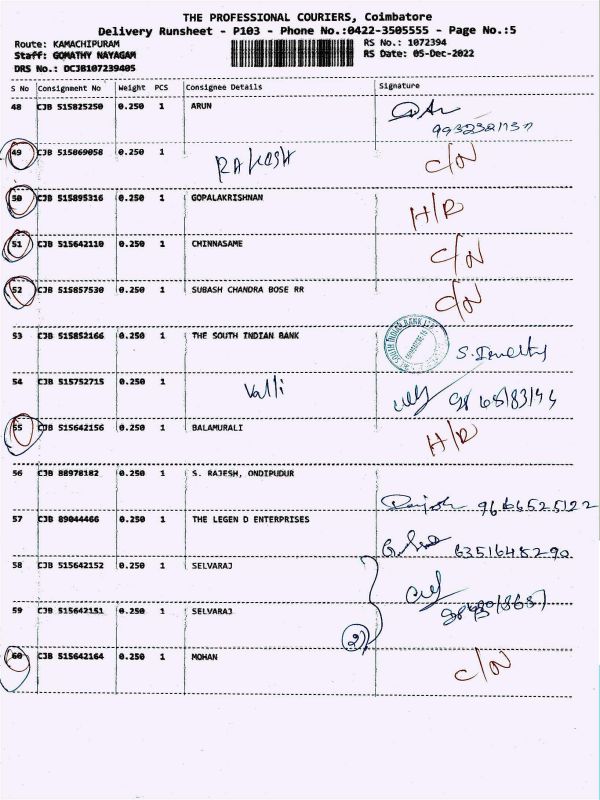 THE PROFESSIONAL COURIERS, Coimbatore
Delivery Runsheet - P103 - Phone No.:0422-3505555 - Page No.:5
Route: KAMACHIPURAM RS No.: 1072394
Staff: GOMATHY NAYAGAM RS Date: 05-Dec-2022
DRS No.: DCJB107239405
S No Consignment No Weight PCS Consignee Details Signature
48 CJB 515825250 0.250 1 ARUN
49 CJB 515869058 0.250 1 RAKESH C/N
50 CJB 515895316 0.250 1 GOPALAKRISHNAN H/R
51 CJB 515642110 0.250 1 CHINNASAME C/N
52 CJB 515857530 0.250 1 SUBASH CHANDRA BOSE RR C/N
53 CJB 515852166 0.250 1 THE SOUTH INDIAN BANK
54 CJB 515752715 0.250 1 Valli
55 CJB 515642156 0.250 1 BALAMURALI H/R
56 CJB 88978182 0.250 1 S. RAJESH, ONDIPUDUR
57 CJB 89044466 0.250 1 THE LEGEN D ENTERPRISES 6351648290
58 CJB 515642152 0.250 1 SELVARAJ
59 CJB 515642151 0.250 1 SELVARAJ
2
60 CJB 515642164 0.250 1 MOHAN C/N